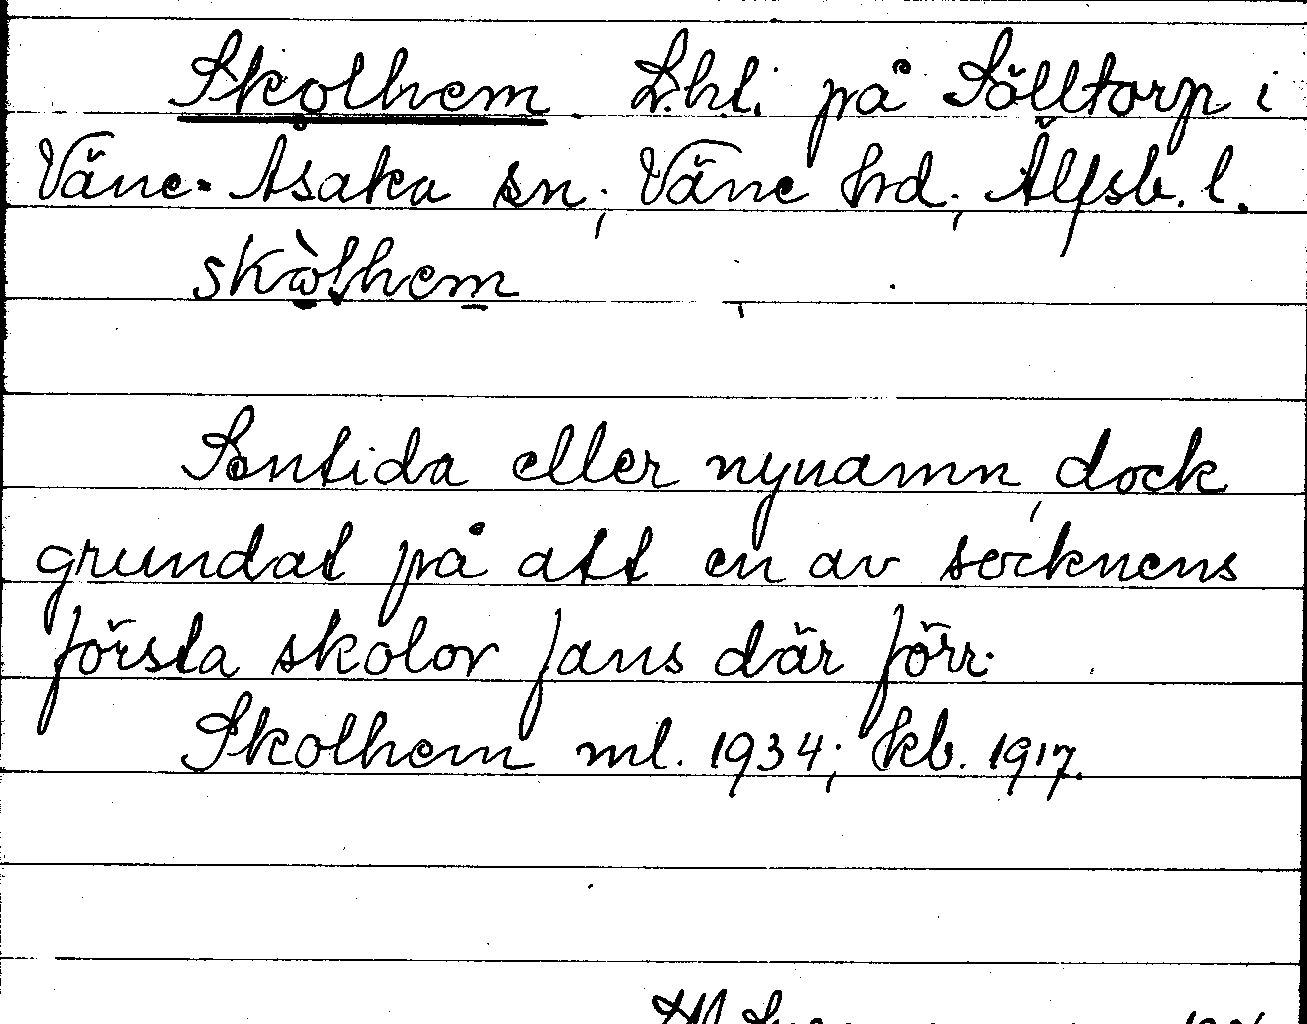 Skolhem L.ht. på Sölltorp i
Väne-Åsaka sn; Väne hd; Älfsb. l.
skὼlhem
Sentida eller nynamn, dock
grundat på att en av socknens
första skolor fans där förr.
Skolhem ml. 1934; kb. 1917.